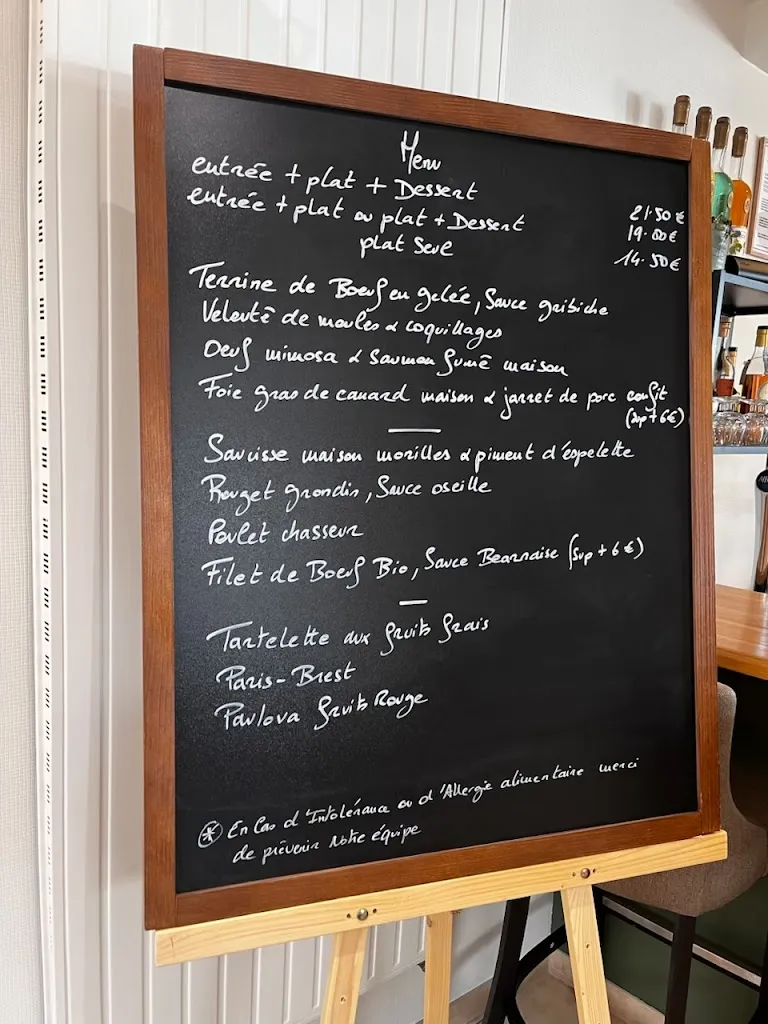 Menu
entrée + plat + Dessert 21.50 €
entrée + plat ou plat + Dessert 19.00 €
plat Seul 14.50 €
Terrine de Boeuf en gelée, Sauce gribiche
Velouté de moules & coquillages
Oeuf mimosa & Saumon fumé maison
Foie gras de canard maison & jarret de porc confit
(sup + 6€)
Saucisse maison morilles & piment d'espelette
Rouget grondin, Sauce oseille
Poulet chasseur
Filet de Boeuf Bio, Sauce Bearnaise (sup + 6 €)
Tartelette aux fruits frais
Paris-Brest
Pavlova fruits Rouge
* En Cas d'Intolérance ou d'Allergie alimentaire merci
de prévenir Notre équipe